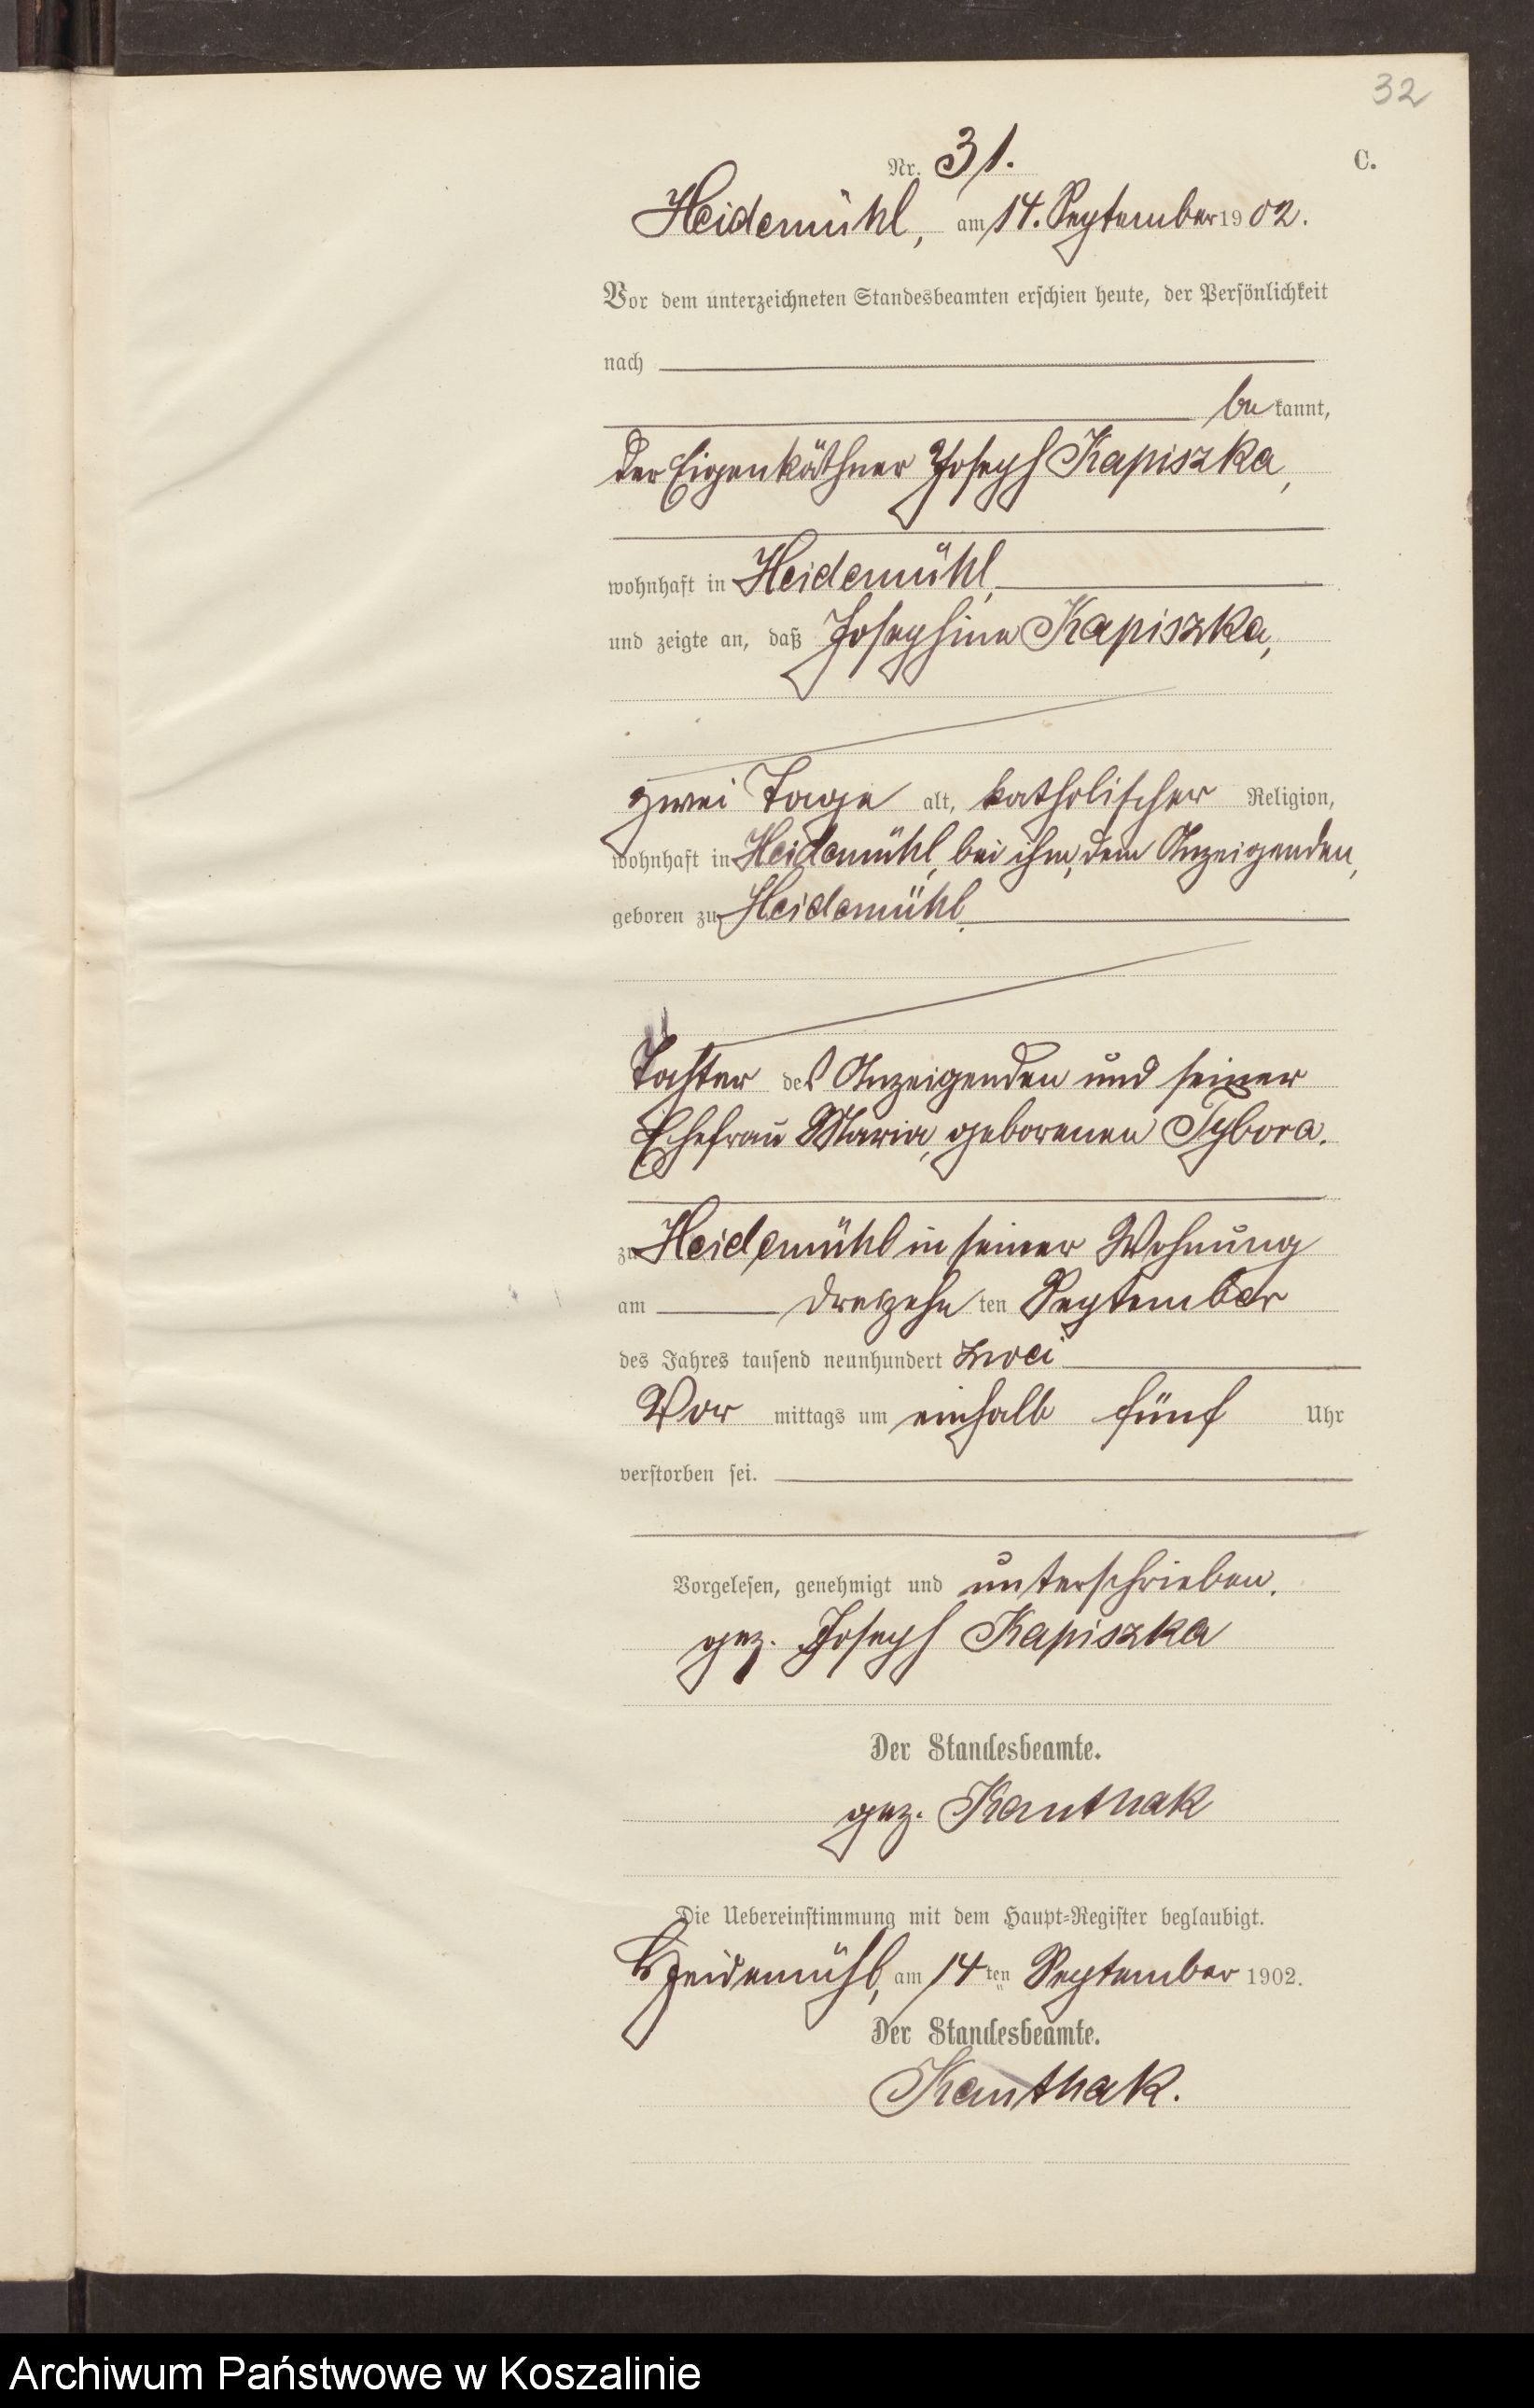 32
Nr. 31.
C.
Heidemühl, am 14. September 1902.
Vor dem unterzeichneten Standesbeamten erschien heute, der Persönlichkeit
nach
be kannt,
der Eigenkäthner Joseph Kapiszka,
wohnhaft in Heidemühl,
und zeigte an, daß Josephine Kapiszka,
zwei Tage alt, katholischer Religion,
wohnhaft in Heidemühl, bei ihm, dem Anzeigenden,
geboren zu Heidemühl,
Tochter des Anzeigenden und seiner
Ehefrau Maria, geborenen Tybora.
zu Heidemühl in seiner Wohnung
am dreizehn ten September
des Jahres tausend neunhundert zwei
Vor mittags um einhalb fünf Uhr
verstorben sei.
Vorgelesen, genehmigt und unterschrieben.
gez. Joseph Kapiszka
Der Standesbeamte.
gez. Kanthak
Die Uebereinstimmung mit dem Haupt-Register beglaubigt.
Heidemühl, am 14 ten September 1902.
Der Standesbeamte.
Kanthak.
Archiwum Państwowe w Koszalinie